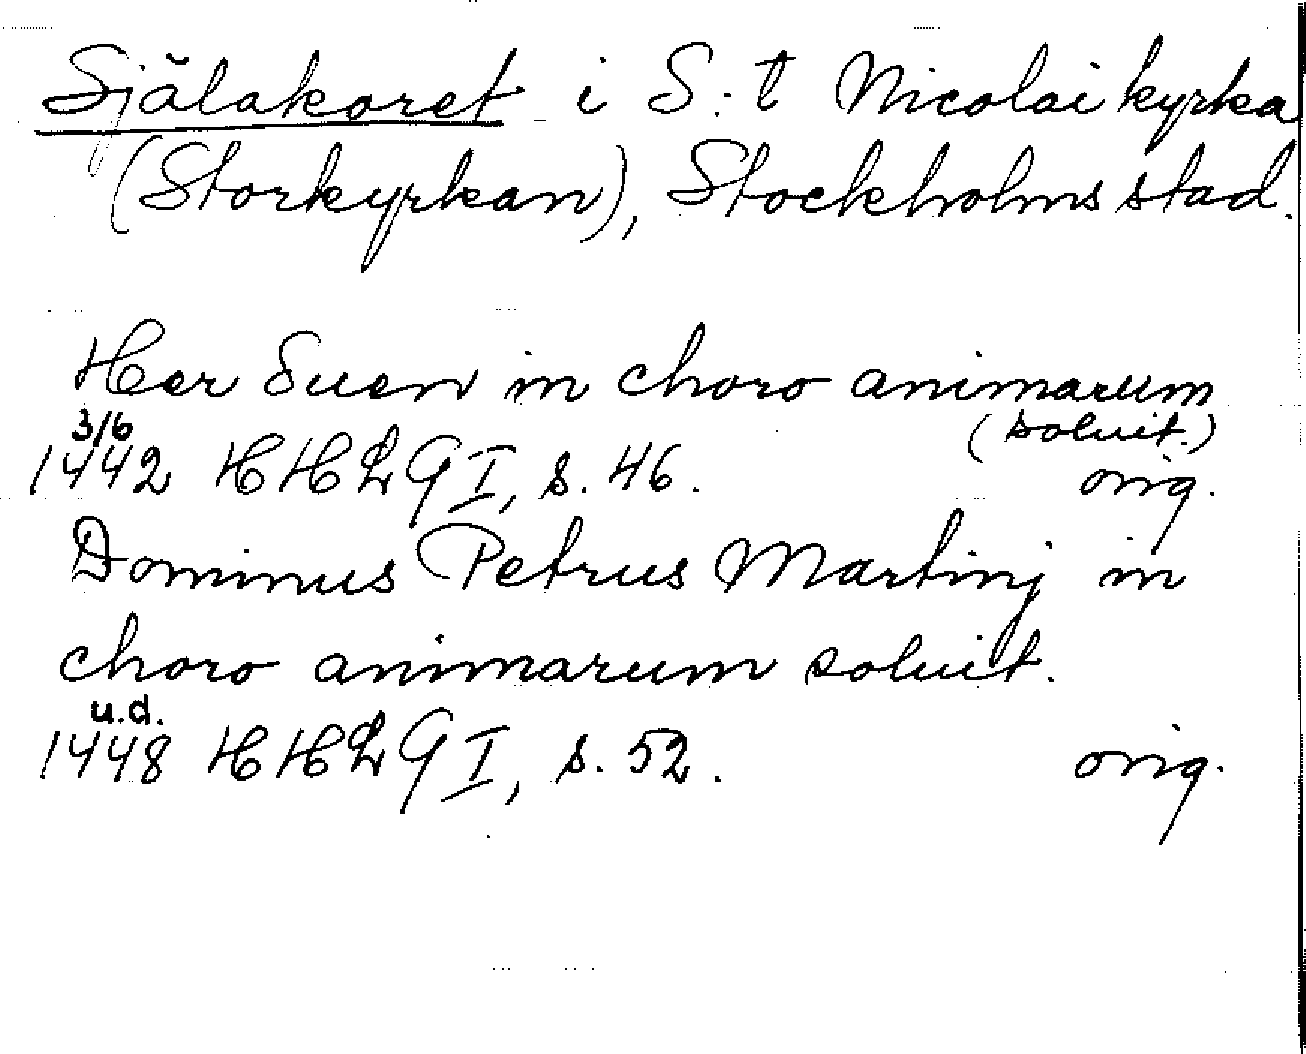 Själakoret i S:t Nicolai kyrka
(Storkyrkan), Stockholms stad.
Her Suen in choro animarum
(soluit.)
3/6
1442 HHLG I, s. 46. orig.
Dominus Petrus Martinj in
choro animarum soluit.
u.d.
1448 HHLG I, s. 52. orig.